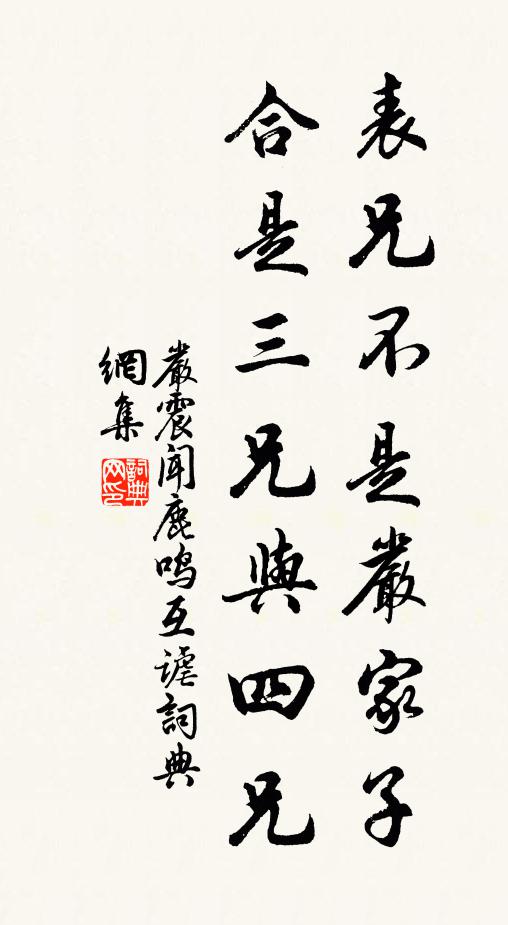 表兄不是嚴家子
合是三兄與四兄
嚴震聞鹿鳴互謔詞典
網集
詞典
网印